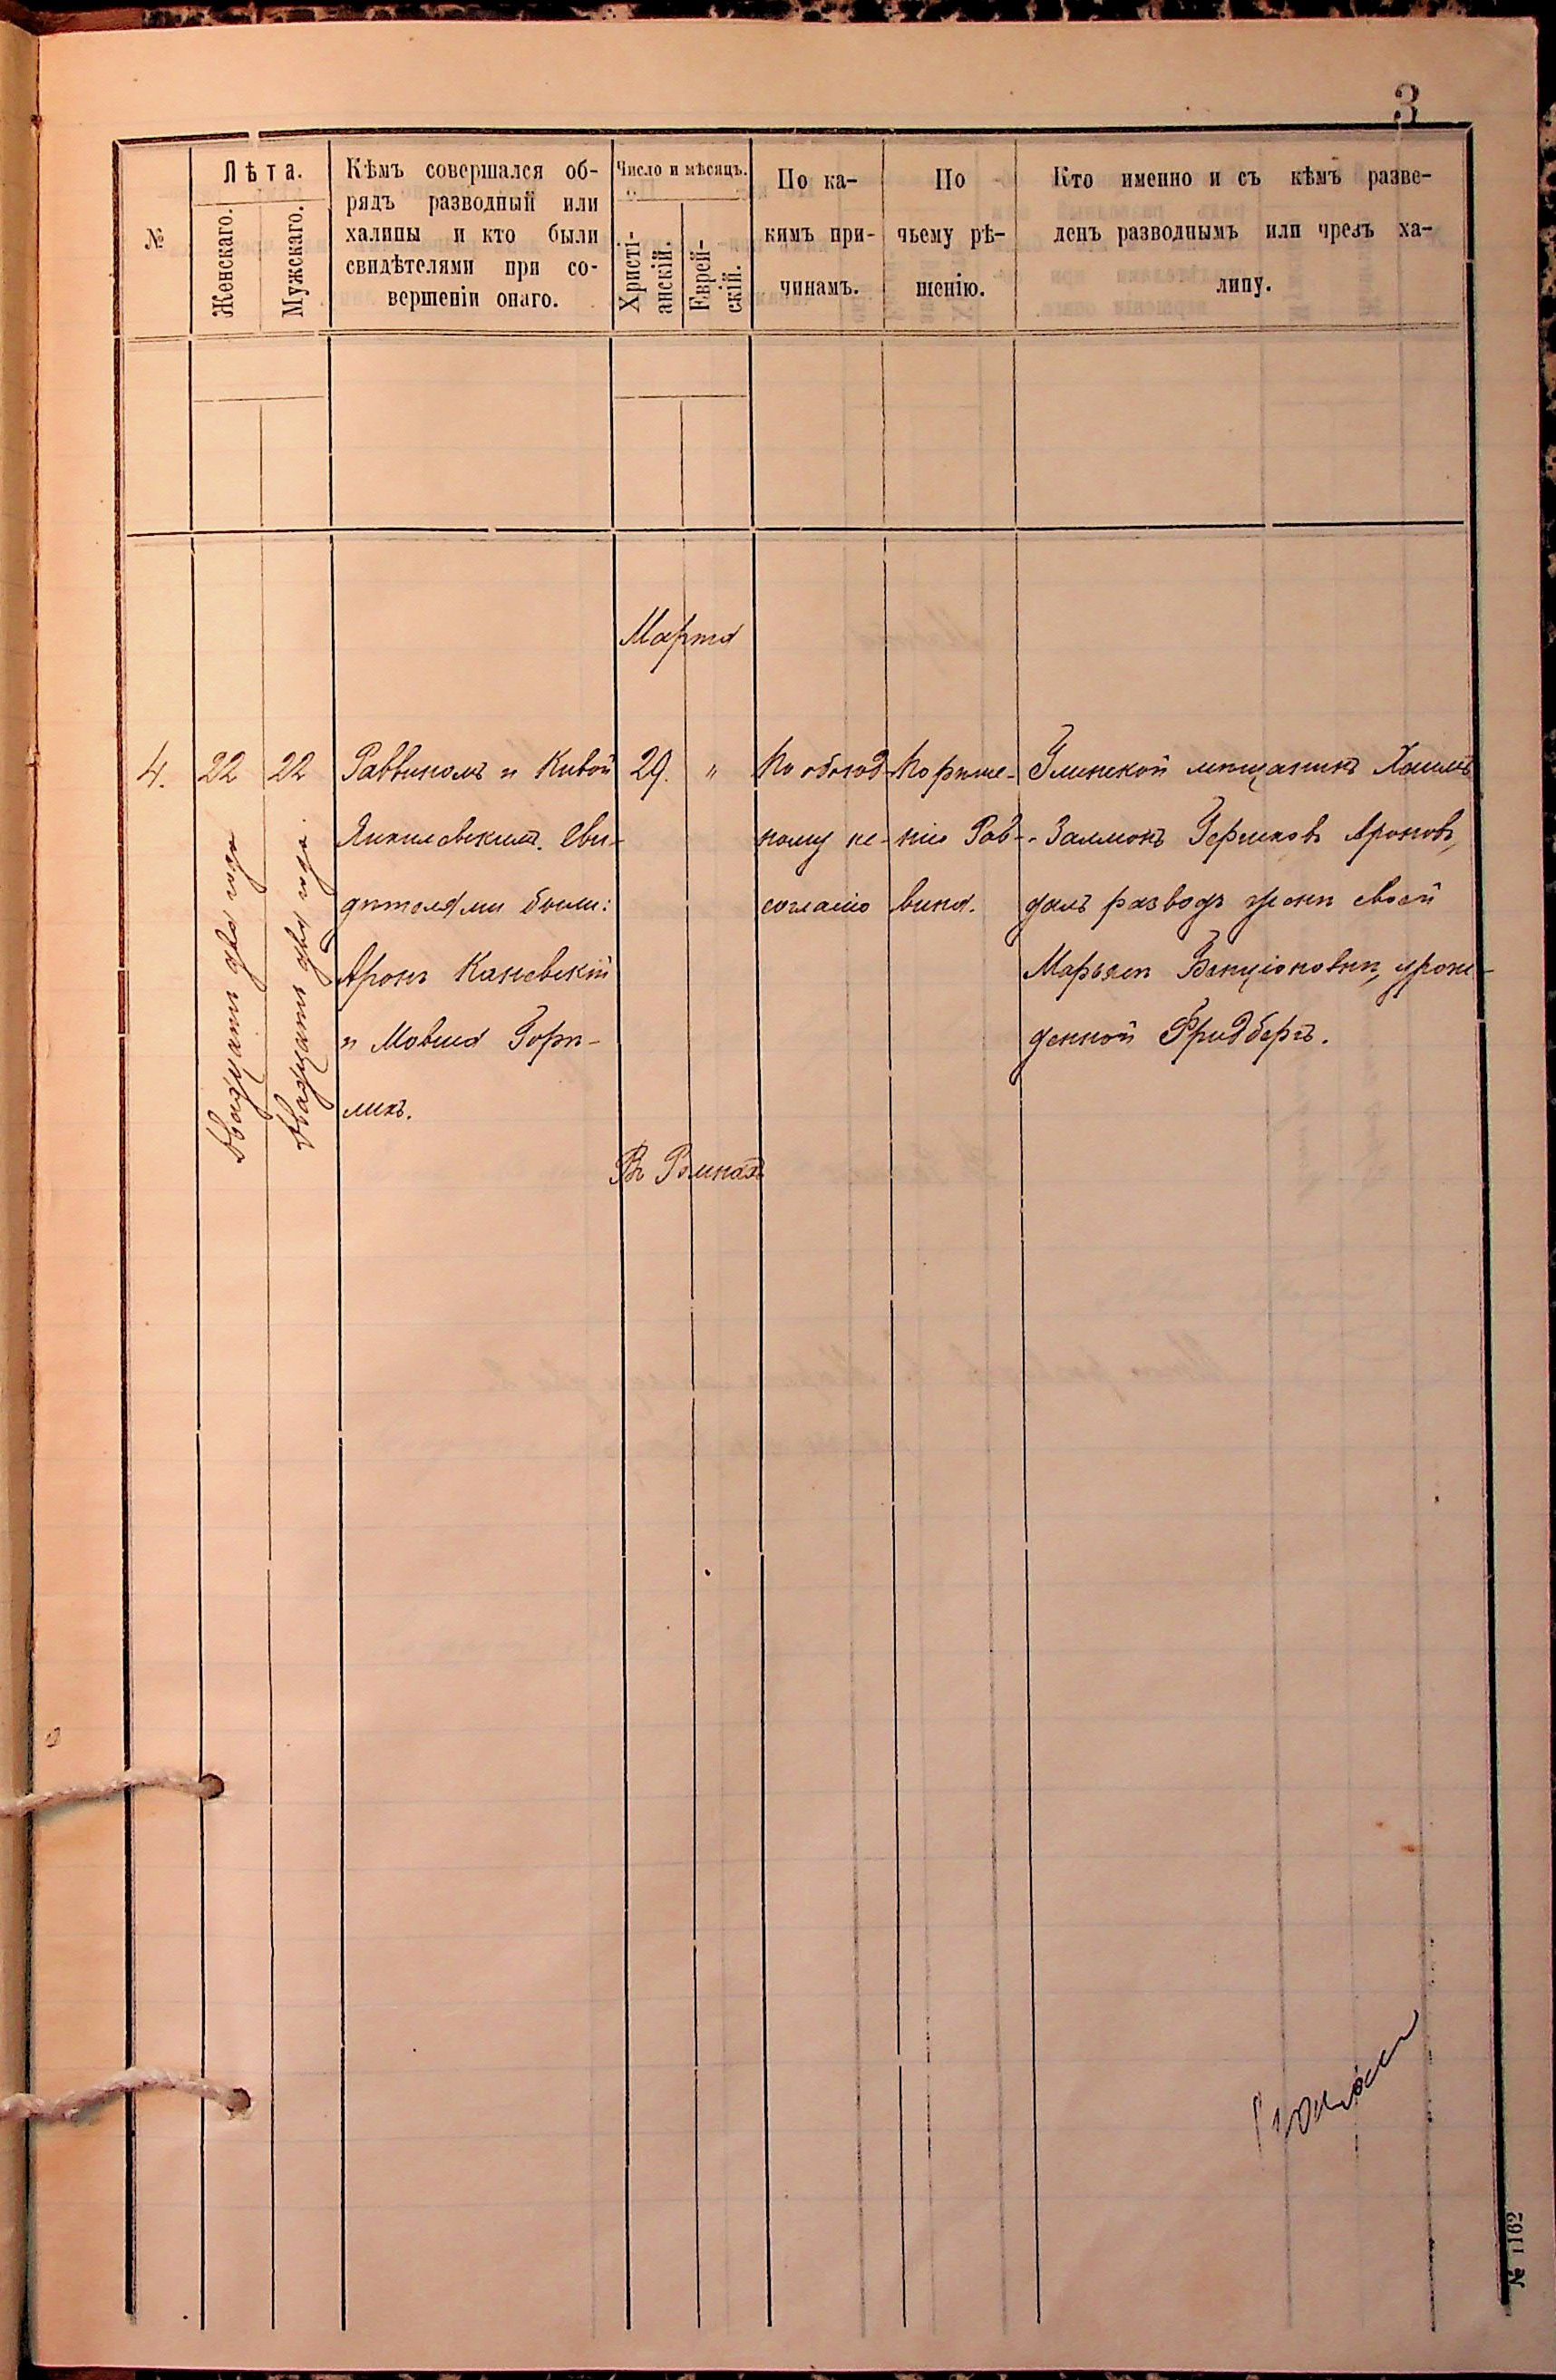 3
№
Лѣта.
Женскаго.
Мужскаго.
Кѣмъ совершался об-
рядъ разводный или
халицы и кто были
свидѣтелями при со-
вершеніи онаго.
Число и мѣсяцъ.
Христі-
анскій.
Еврей-
скій.
По ка-
кимъ при-
чинамъ.
По
чьему рѣ-
шенію.
Кто именно и съ кѣмъ разве-
денъ разводнымъ или чрезъ ха-
лицу.
Марта
4.
22
Двадцать два года
22
Двадцать два года.
Раввиномъ Кивой
Янкилевскимъ. Сви-
дѣтелями были:
Аронъ Каневскій
и Мовша Горѣ-
ликъ.
29.
"
По обоюд-
ному не-
согласію
По рѣше-
нію Рав-
вина.
Глинскій мѣщанинъ Хаимъ
-Залмонъ Гершковъ Ароновъ,
далъ разводъ женѣ своей
Марьясѣ Бенціоновнѣ, урож-
денной Фридбергъ.
Въ Ромнахъ
№ 1162